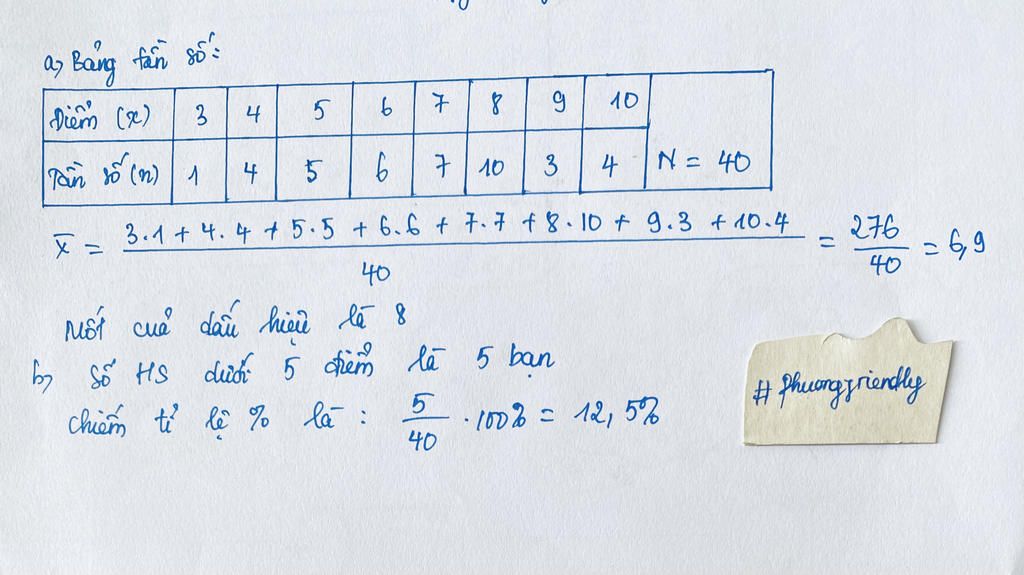 a, Bảng tần số:
Điểm (x) 3 4 5 6 7 8 9 10
Tần số (n) 1 4 5 6 7 10 3 4 N = 40
x̄ = (3.1 + 4.4 + 5.5 + 6.6 + 7.7 + 8.10 + 9.3 + 10.4) / 40 = 276/40 = 6,9
Mốt của dấu hiệu là 8
b, Số HS dưới 5 điểm là 5 bạn
chiếm tỉ lệ % là : 5/40 . 100% = 12,5%
# phuongfriendly